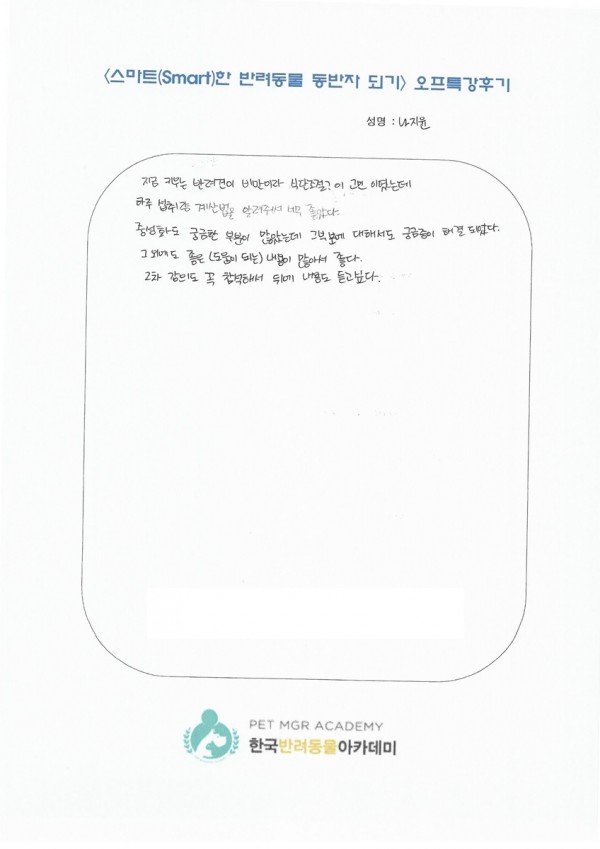 <스마트(Smart)한 반려동물 동반자 되기> 오프특강후기
성명 : 나지윤
지금 키우는 반려견이 비만이라 식단조절?이 고민 이었는데
하루 섭취량 계산법을 알려주셔서 너무 좋았다.
중성화도 궁금한 부분이 많았는데 그부분에 대해서도 궁금증이 해결 되었다.
그 외에도 좋은 (도움이 되는) 내용이 많아서 좋다.
2차 강의도 꼭 참석해서 뒤에 내용도 듣고싶다.
PET MGR ACADEMY
한국반려동물아카데미